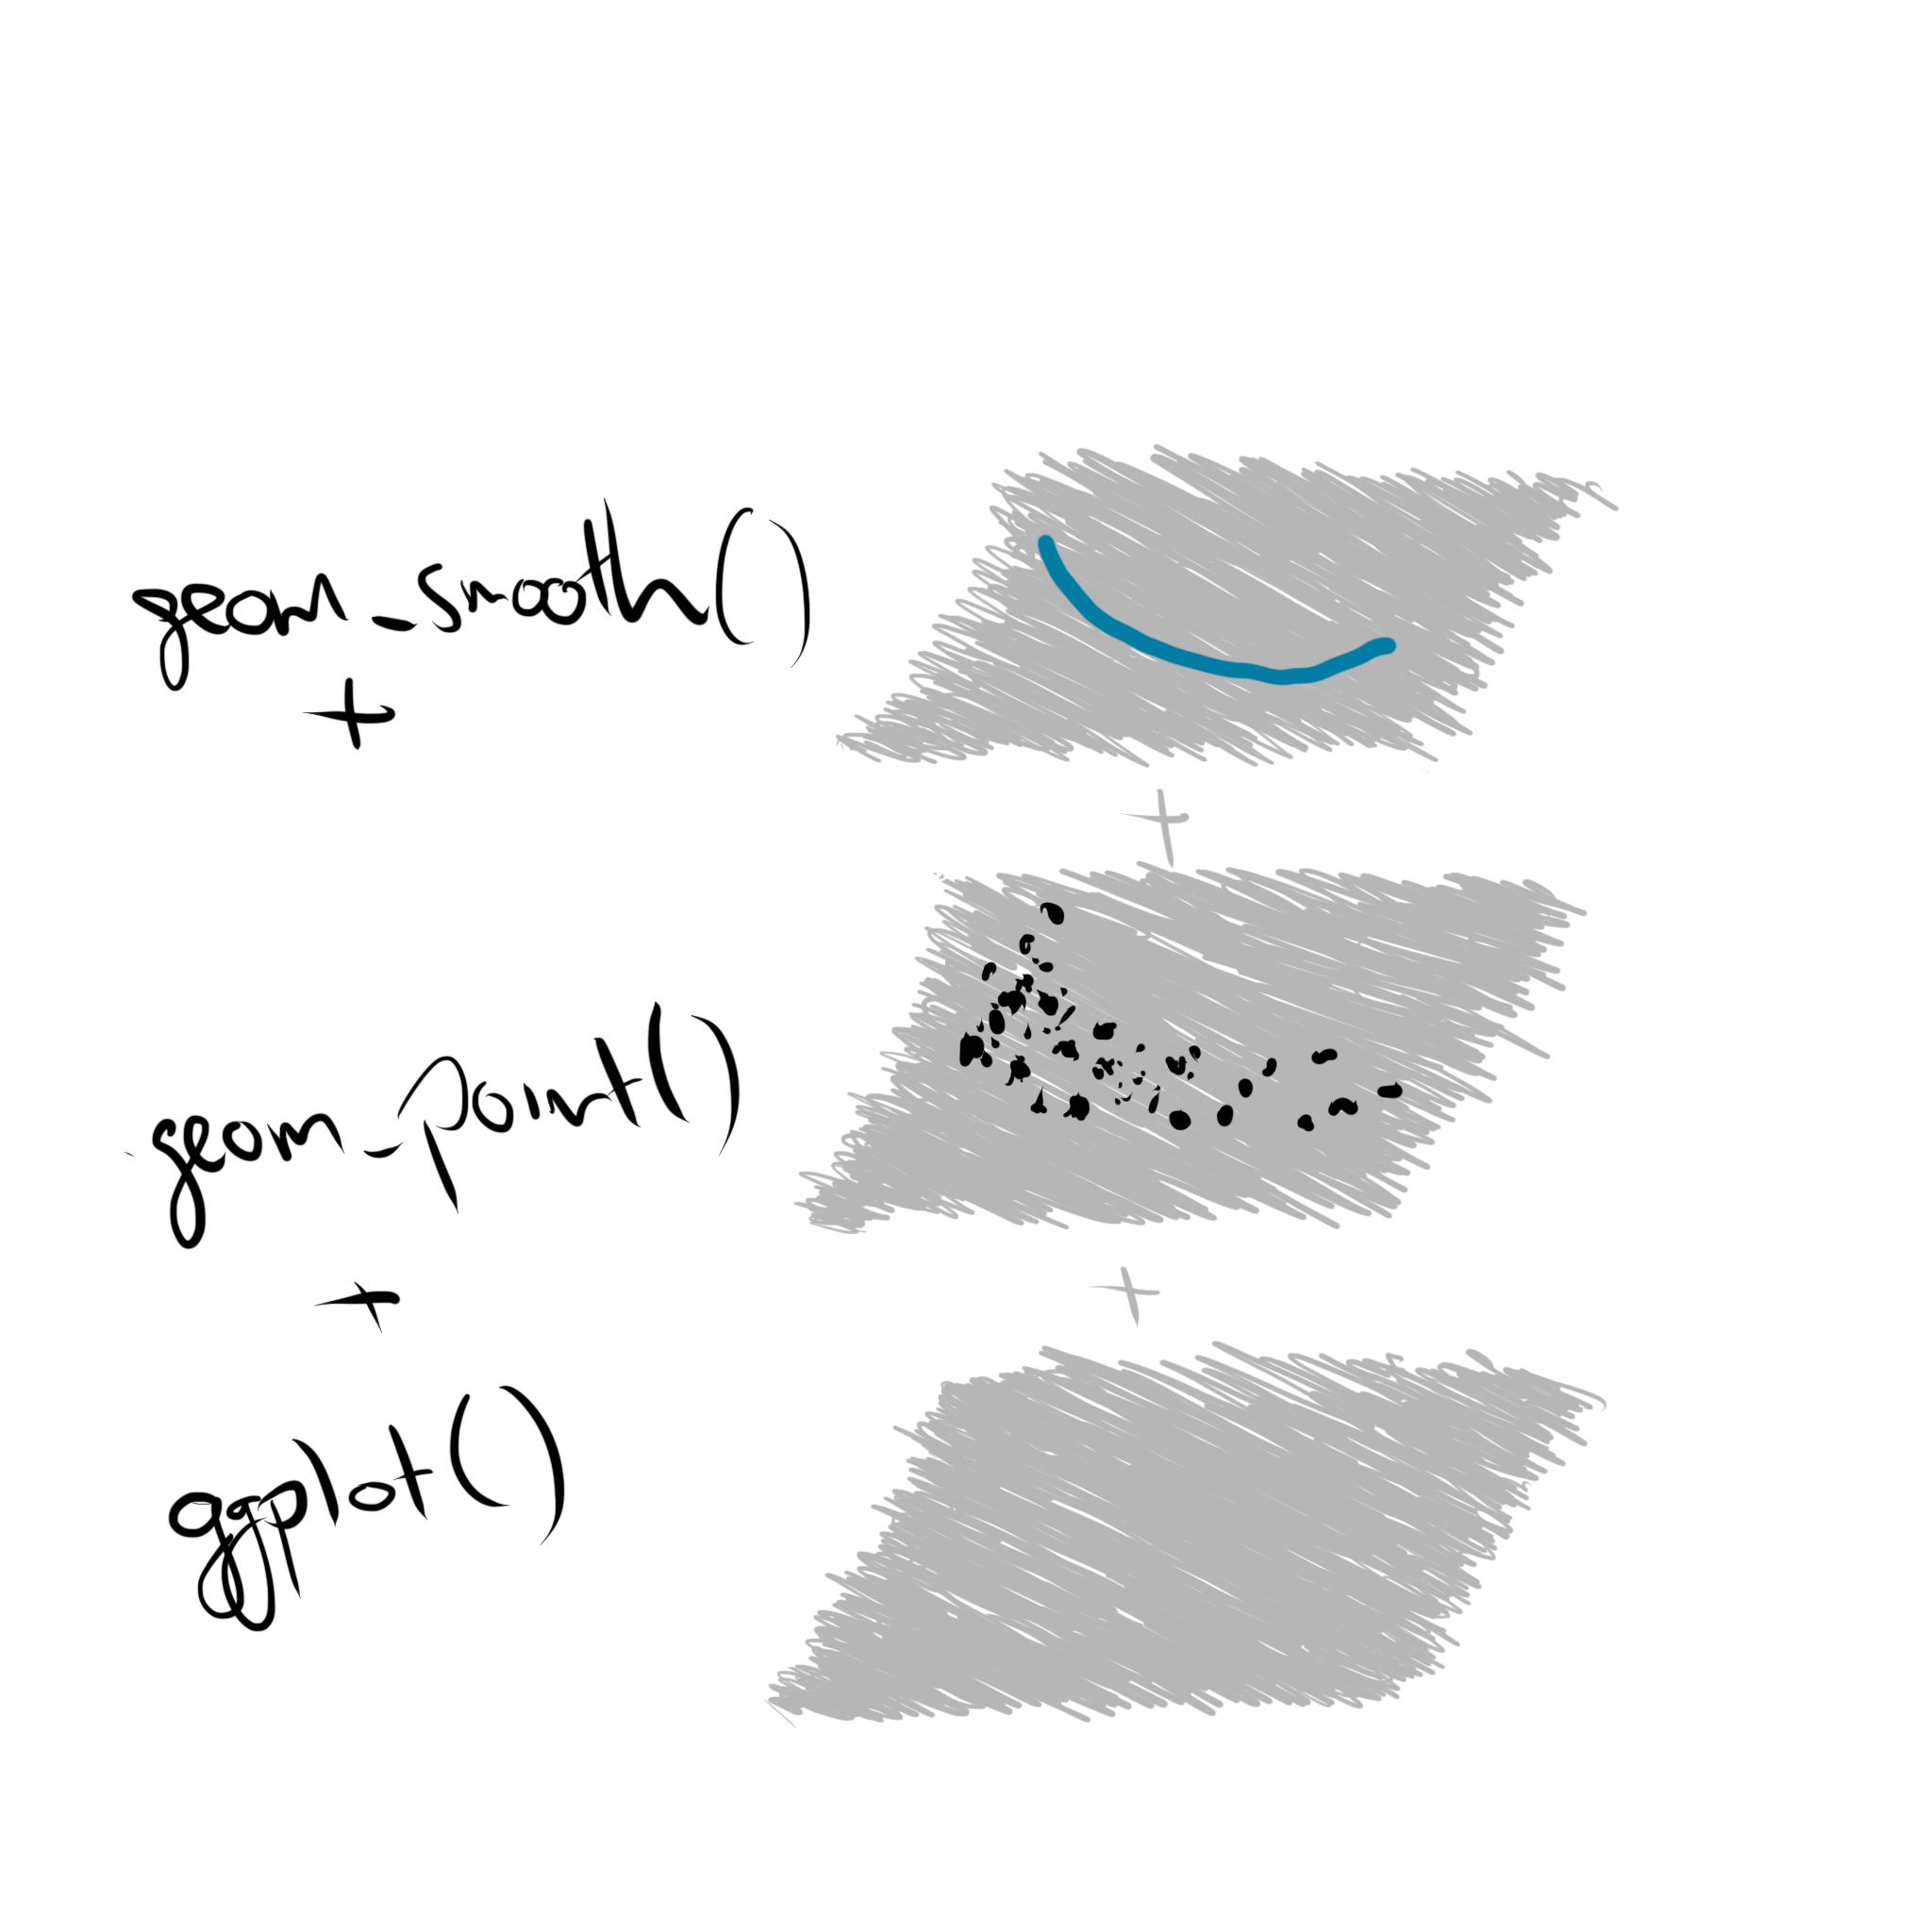 geom_smooth()
+
+
geom_point()
+
+
ggplot()